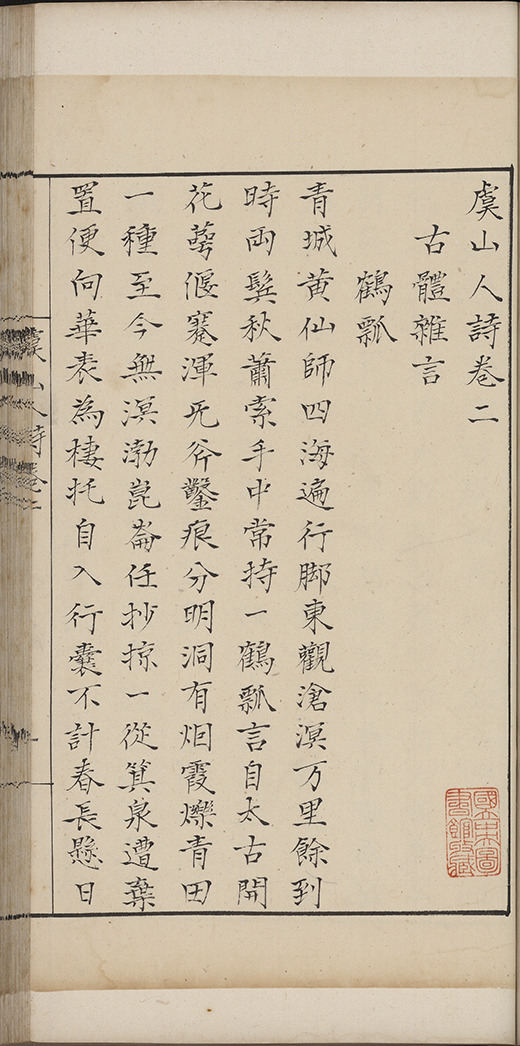 虞山人詩卷二
古體雜言
鶴瓢
青城黄仙師四海遍行脚東觀滄溟万里餘到
時両鬂秋蕭索手中常持一鶴瓢言自太古開
花蕚偃蹇渾旡斧鑿痕分明洞有烟霞爍青田
一種至今無溟渤崑崙任抄掠一從箕泉遭棄
置便向華表為棲托自入行囊不計春長懸日
國立東圖
書館收藏